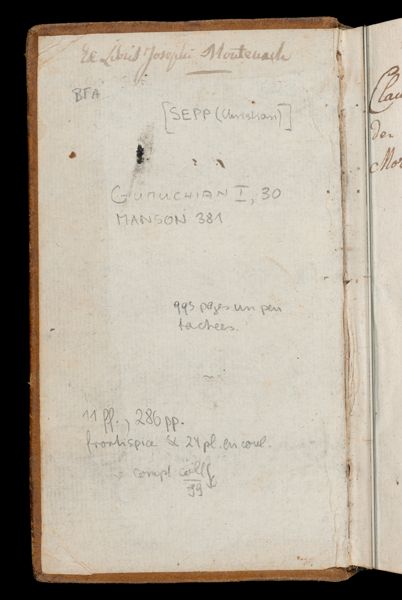 Ex Libris Josephi Montenach
BFA
[SEPP (Christian)]
GUMUCHIAN I, 30
MANSON 381
pages un peu
tachées.
11 ff., 286 pp.
frontispice & 24 pl. en coul.
compl
99
der